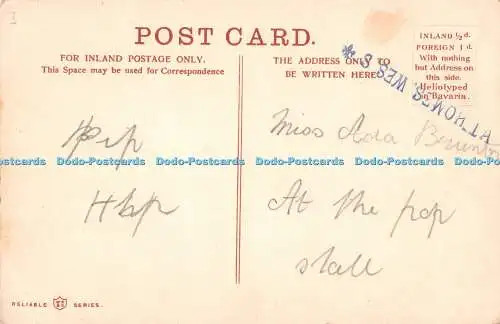 POST CARD.
FOR INLAND POSTAGE ONLY.
This Space may be used for Correspondence
THE ADDRESS ONLY TO
BE WRITTEN HERE
INLAND ½d.
FOREIGN 1d.
With nothing
but Address on
this side.
Heliotyped
in Bavaria.
AT HOMES, WES
Pip
Hip
Miss Ada
At the pop
stall
Dodo-Postcards Dodo-Postcards Dodo-Postcards Dodo-Postcards Dodo-Postcards
Dodo-Postcards Dodo-Postcards Dodo-Postcards Dodo-Postcards Dodo-Postcards
RELIABLE SERIES.